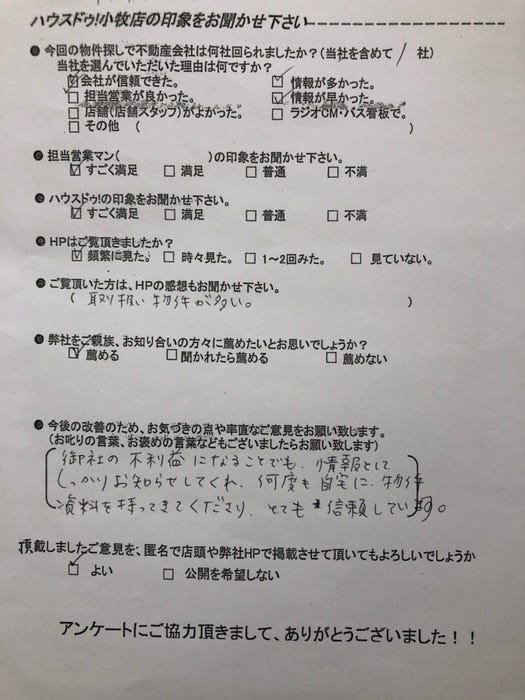 ハウスドゥ!小牧店の印象をお聞かせ下さい
● 今回の物件探しで不動産会社は何社回られましたか?(当社を含めて 1 社)
当社を選んでいただいた理由は何ですか?
☑会社が信頼できた。 ☑ 情報が多かった。
☑ 担当営業が良かった。 ☑ 情報が早かった。
□ 店舗(店舗スタッフ)がよかった。 □ ラジオCM・バス看板で。
□ その他 ( )
● 担当営業マン( )の印象をお聞かせ下さい。
☑ すごく満足 □ 満足 □ 普通 □ 不満
● ハウスドゥ!の印象をお聞かせ下さい。
☑ すごく満足 □ 満足 □ 普通 □ 不満
● HPはご覧頂きましたか?
☑ 頻繁に見た。 □ 時々見た。 □ 1~2回みた。 □ 見ていない。
● ご覧頂いた方は、HPの感想もお聞かせ下さい。
( 取り扱い物件が多い。 )
● 弊社をご親族、お知り合いの方々に薦めたいとお思いでしょうか?
☑ 薦める □聞かれたら薦める □ 薦めない
● 今後の改善のため、お気づきの点や率直なご意見をお願い致します。
(お叱りの言葉、お褒めの言葉などもございましたらお願い致します)
御社の不利益になることでも、情報として
しっかりお知らせしてくれ、何度も自宅に、物件
資料を持ってきてくださり、とても信頼しています。
頂戴しましたご意見を、匿名で店頭や弊社HPで掲載させて頂いてもよろしいでしょうか
☑ よい □ 公開を希望しない
アンケートにご協力頂きまして、ありがとうございました!!